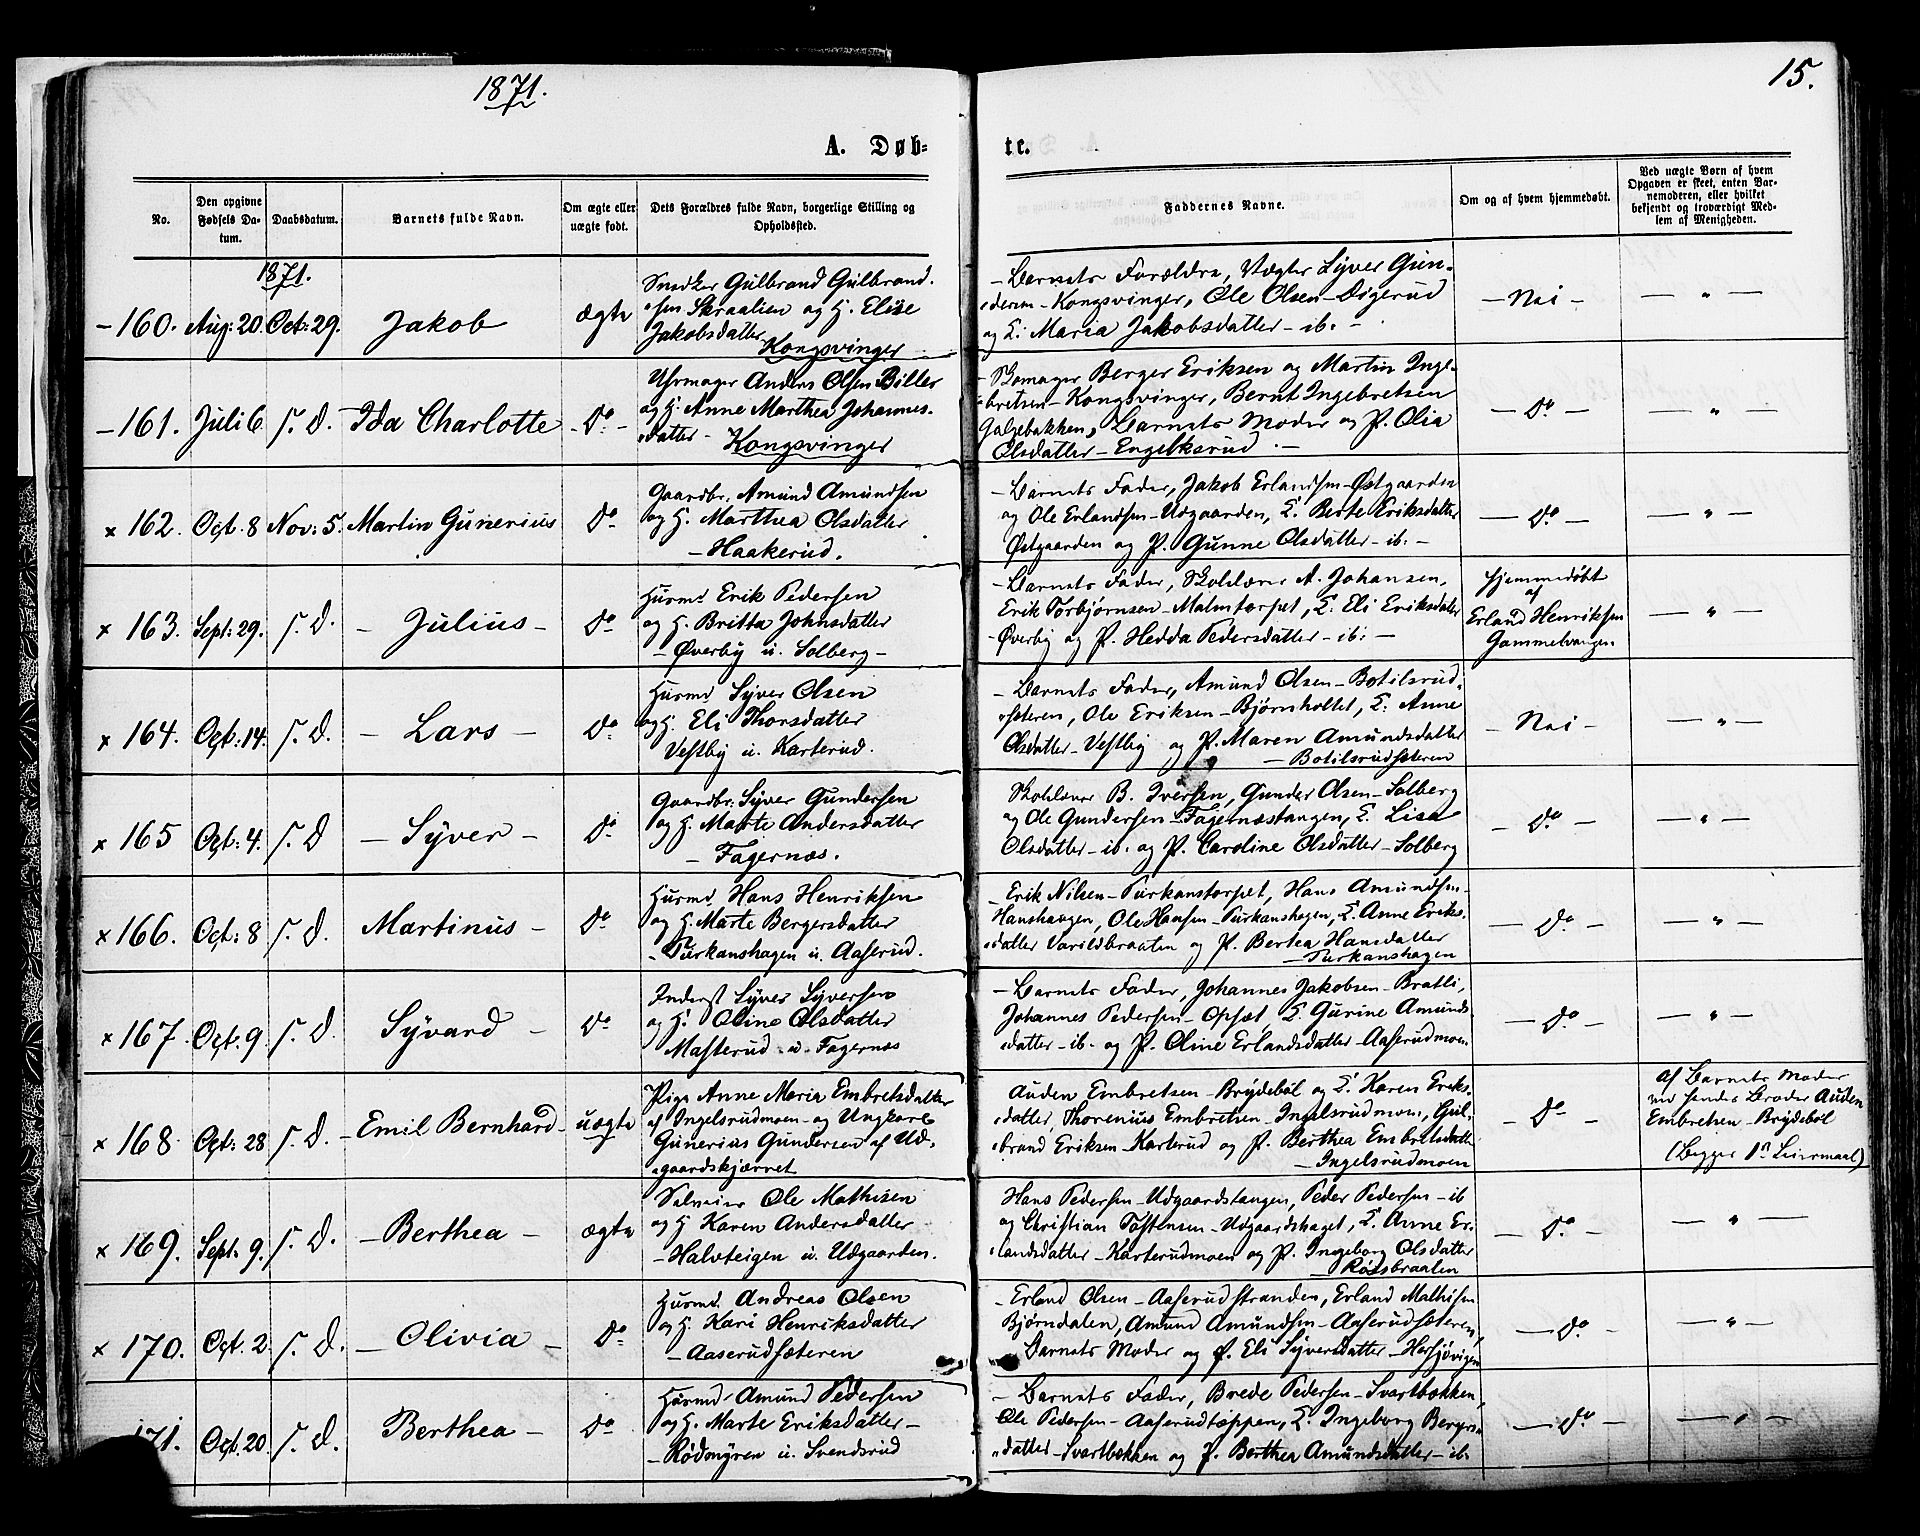 1871.
15.
A. Døb-
te.
No.
Den opgivne Fødsels Da-tum.
Daabsdatum.
Barnets fulde Navn.
Om ægte eller uægte født.
Dets Forældres fulde Navn, borgerlige Stilling og Opholdssted.
Faddernes Navne.
Om og af hvem hjemmedøbt.
Ved uægte Børn af hvem Opgaven er skeet, enten Bar-nemoderen, eller hvilket bekjendt og troværdigt Med-lem af Menigheden.
1871.
160. Aug: 20. Oct: 29. Jakob ægte
Snedker Gulbrand Gulbrand-
sen Skraalien og H. Elise
Jakobsdatter
Kongsvinger
Barnets Forældre, Vægter Syver Gun-
dersen - Kongsvinger, Ole Olsen - Digerud
og E: Maria Jakobsdatter - ib. -
- Nei - - " -
161. Juli 6. s. D. Ida Charlotte - Do -
Uhrmager Anders Olsen Biller
og H. Anne Marthea Johannes-
datter -
Kongsvinger
Skomager Berger Eriksen og Martin Inge-
bretsen - Kongsvinger, Bernt Ingebretsen
Galgebakken, Barnets Moder og P. Olia
Olsdatter - Engelksrud. -
- Do - - " -
x 162. Oct. 8 Nov: 5. Martin Gunerius Do
Gaardbr. Amund Amundsen
og H. Marthea Olsdatter
- Haakerud.
- Barnets Fader, Jakob Erlandsen - Østgaarden
og Ole Erlandsen - Udgaarden, E. Berte Eriksdatter
Østgaarden og P. Gunne Olsdatter - ib. -
- Do - - " -
x 163. Sept: 29. s. D. - Julius - Do
Husmd. Erik Pedersen
og H. Britta Johnsdatter
- Øverby u. Solberg -
- Barnets Fader, Skolelærer A. Johansen,
Erik Torbjørnsen - Malmtorpet, E. Eli Eriksdatter
- Øverby og P. Hedda Pedersdatter - ib: -
Hjemmedøbt
af
Erland Henriksen
Gammelvangen
- " -
x 164. Oct: 14. s. D. - Lars - Do
Husmd. Syver Olsen
og H. Eli Thorsdatter
Vestby u. Karterud.
- Barnets Fader, Amund Olsen - Botilsrud-
sæteren, Ole Eriksen - Bjørnholtet, E. Anne
Olsdatter - Vestby og P. Maren Amundsdatter
- Botilsrudsæteren
- Nei - - " -
x 165 Oct: 4. s. D - Syver - Do
Gaardbr. Syver Gundersen
og H. Marte Andersdatter
- Fagernæs.
Skolelærer B. Iversen, Gunder Olsen - Solberg
og Ole Gundersen - Fagernæstangen, E. Lisa
Olsdatter - ib. og P. Caroline Olsdatter - Solberg
- Do - - " -
x 166. Oct: 8 s. D. Martinus - Do
Husmd. Hans Henriksen
og H. Marte Bergersdatter
- Purkanshagen u. Aaserud.
- Erik Nilsen - Purkanstorpet, Hans Amundsen -
Hanshaugen, Ole Hansen - Purkanshagen, E. Anne Eriks-
datter Varildbraaten og P. Bertea Hansdatter
- Purkanshagen
- Do - - " -
x 167. Oct. 9. s. D. Syvard - Do
Inderst Syver Syversen
og H. Oline Olsdatter
Masterud u. Fagernæs
- Barnets Fader, Johannes Jakobsen - Bratli,
Johannes Pedersen - Opset, E. Gurine Amunds-
datter - ib. og P. Oline Erlandsdatter - Aaserudmoen
- Do - - " -
x 168 Oct: 28 s. D. - Emil Bernhard - uægte
Pige Anne Maria Embretsdatter
af Ingelsrudmoen - og Ungkarl
Gunerius Gundersen af Ud-
gaardskjærnet
Auden Embretsen - Brydebøl og E. Karen Eriks-
datter, Thorenius Embretsen - Ingelsrudmoen, Gul-
brand Eriksen - Karterud og P. Berthea Embretsdatter
- Ingelsrudmoen
- Do -
af Barnets Moder
med hendes Broder Auden
Embretsen - Brydebøl
(Begges 1ste Leiermaal)
x 169. Sept: 9. s. D. - Berthea - ægte
Selveier Ole Mathisen
og H. Karen Andersdatter
- Halvteigen u. Udgaarden.
Hans Pedersen - Udgaardstangen, Peder Pedersen - ib
og Christian Tostensen - Udgaardshaget, E. Anne Er-
landsdatter - Karterudmoen og P. Ingeborg Olsdatter
- Rødsbraaten
- Do. - - " -
x 170. Oct. 2. s. D. - Olivia - Do
Husmd. Andreas Olsen
og H. Kari Henriksdatter
- Aaserudsæteren
- Erland Olsen - Aaserudstranden, Erland Mathisen
Bjørndalen, Amund Amundsen - Aaserudsæteren,
Barnets Moder og P. Eli Syversdatter - Hersjøvigen
- Do. - - " -
171. Oct. 20. s. D. Berthea - Do
Husmd. Amund Pedersen
og H. Marte Eriksdatter -
- Rødmyren u. Svendsrud
- Barnets Fader, Brede Pedersen - Svartbækken,
Ole Pedersen - Aaserudtøppen, E. Ingeborg Bergers-
datter - Svartbækken og P. Berthea Amundsdatter - ib.
- Do - - " -